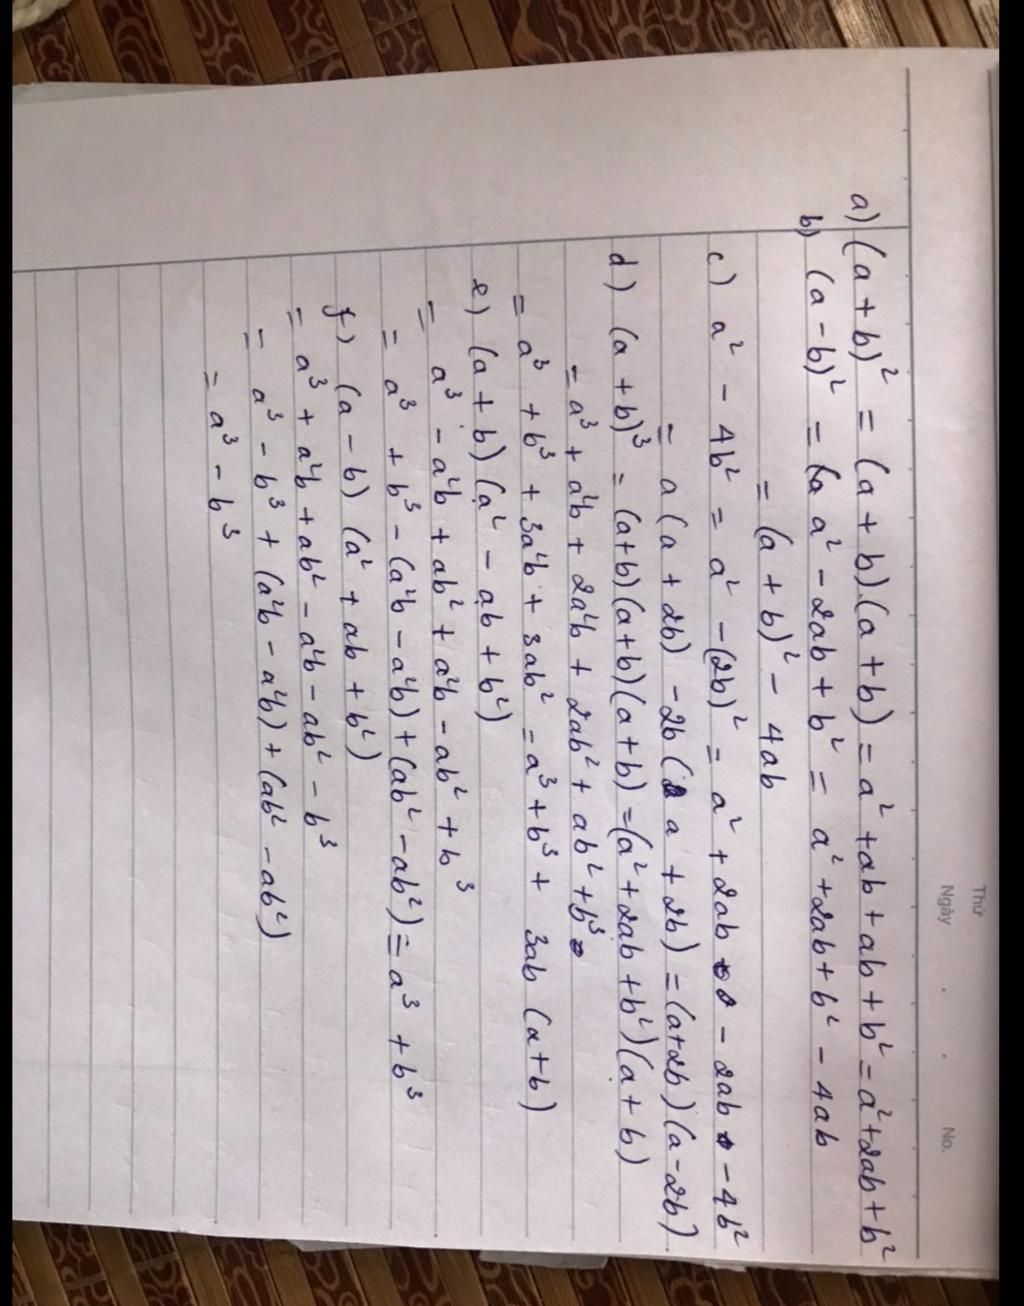 Thứ
Ngày . . No.
a) (a + b)² = (a + b).(a + b) = a² + ab + ab + b² = a² + 2ab + b²
b) (a - b)² = a² - 2ab + b² = a² + 2ab + b² - 4ab
= (a + b)² - 4ab
c) a² - 4b² = a² - (2b)² = a² + 2ab - 2ab - 4b²
= a (a + 2b) - 2b (a + 2b) = (a+2b) (a - 2b)
d) (a + b)³ = (a+b) (a+b) (a+b) = (a² + 2ab + b²) (a + b)
= a³ + a²b + 2a²b + 2ab² + ab² + b³
= a³ + b³ + 3a²b + 3ab² = a³ + b³ + 3ab (a+b)
e) (a + b) (a² - ab + b²)
= a³ - a²b + ab² + a²b - ab² + b³
= a³ + b³ - (a²b - a²b) + (ab² - ab²) = a³ + b³
f) (a - b) (a² + ab + b²)
= a³ + a²b + ab² - a²b - ab² - b³
= a³ - b³ + (a²b - a²b) + (ab² - ab²)
= a³ - b³